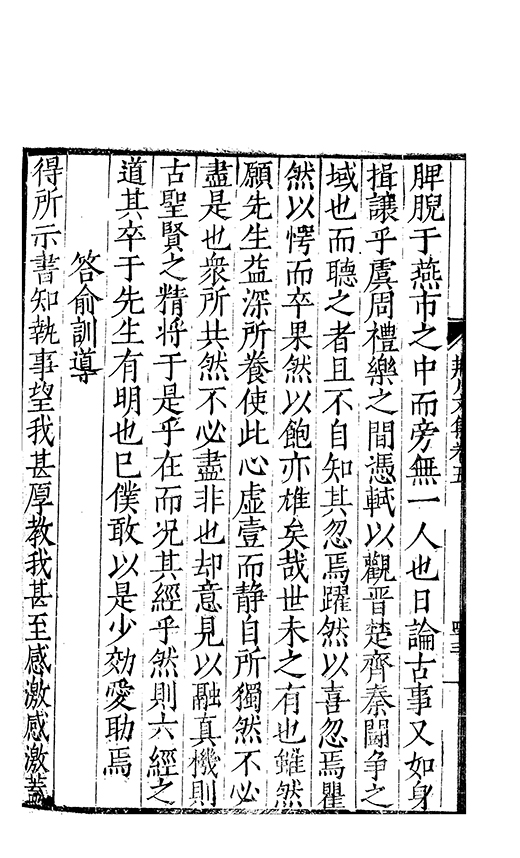 脾睨于燕市之中而旁無一人也日論古事又如身
揖讓乎虞周禮樂之間憑軾以觀晉楚齊秦鬪争之
域也而聽之者且不自知其忽焉躍然以喜忽焉瞿
然以愕而卒果然以飽亦雄矣哉世未之有也雖然
願先生益深所養使此心虛壹而静自所獨然不必
盡是也衆所共然不必盡非也却意見以融真機則
古聖賢之精将于是乎在而况其經乎然則六經之
道其卒于先生有明也已僕敢以是少効愛助焉
答俞訓導
得所示書知執事望我甚厚教我甚至感激感激蓋